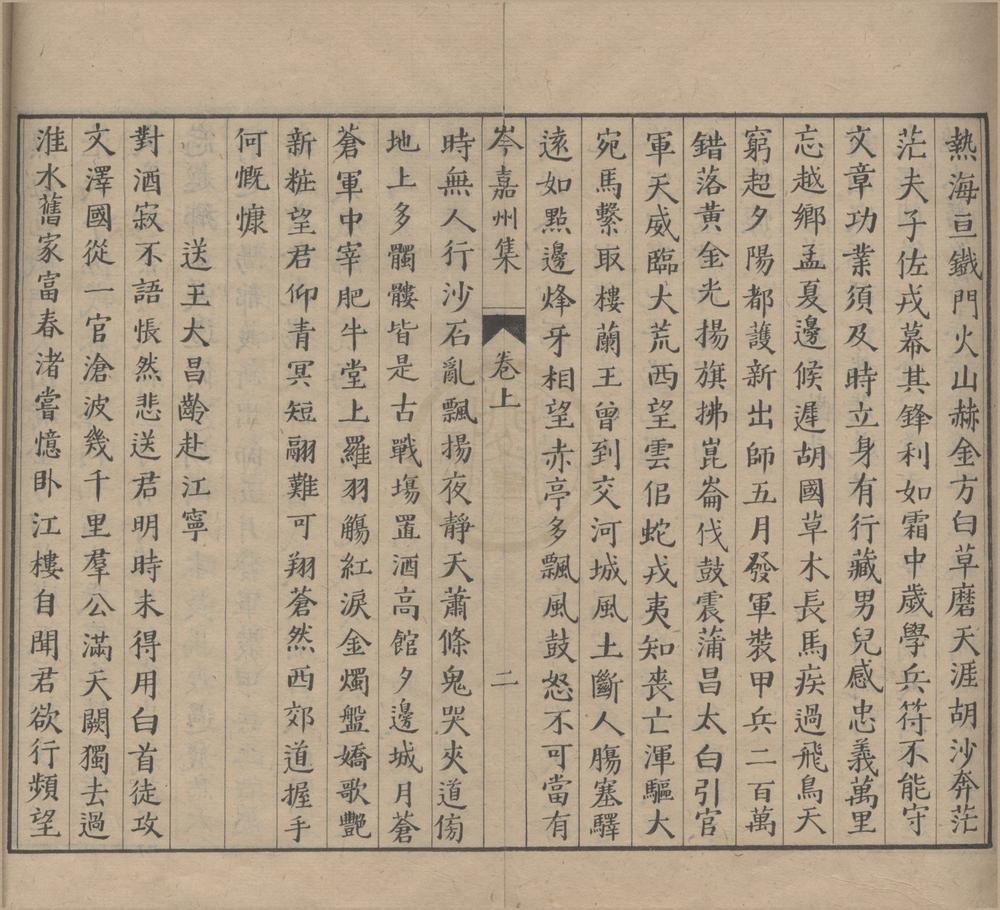 熱海亘鐵門火山赫金方白草磨天涯胡沙奔茫
茫夫子佐戎幕其鋒利如霜中歲學兵符不能守
文章功業須及時立身有行藏男兒感忠義萬里
忘越鄉孟夏邊候遲胡國草木長馬疾過飛鳥天
窮超夕陽都護新出師五月發軍裝甲兵二百萬
錯落黃金光揚旗拂崑崙伐鼓震蒲昌太白引官
軍天威臨大荒西望雲佀蛇戎夷知喪亡渾驅大
宛馬繫取樓蘭王曾到交河城風土斷人膓塞驛
遠如點邊烽牙相望赤亭多飄風鼓怒不可當有
岑嘉州集
卷上
二
時無人行沙石亂飄揚夜靜天蕭條鬼哭夾道傍
地上多髑髏皆是古戰塲置酒高館夕邊城月蒼
蒼軍中宰肥牛堂上羅羽觴紅淚金燭盤嬌歌艷
新粧望君仰青冥短翮難可翔蒼然西郊道握手
何慨慷
送王大昌齡赴江寧
對酒寂不語悵然悲送君明時未得用白首徒攻
文澤國從一官滄波幾千里羣公滿天闕獨去過
淮水舊家富春渚嘗憶卧江樓自聞君欲行頻望